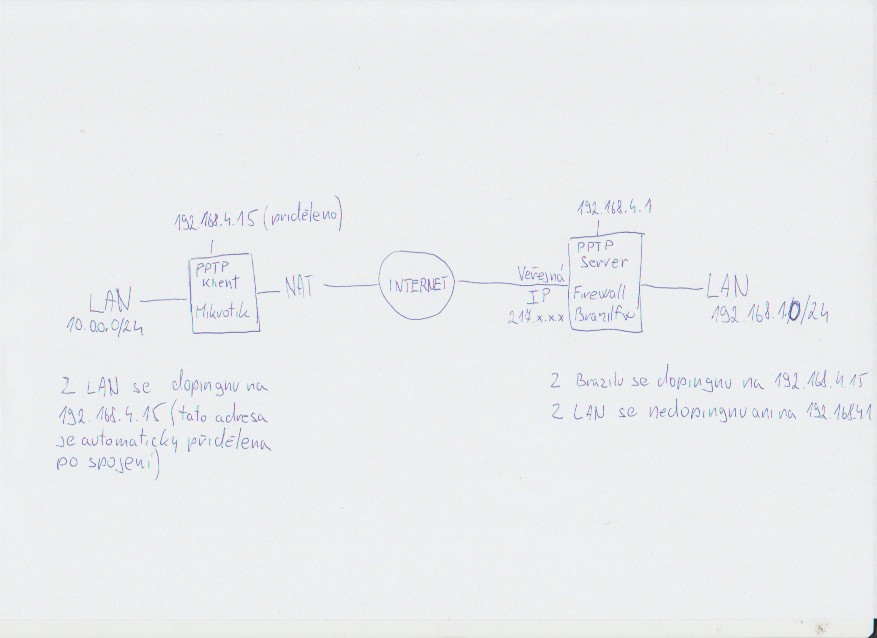 192.168.4.15 (přiděleno)
192.168.4.1
PPTP
Klient
Mikrotik
LAN
10.0.0.0/24
NAT
INTERNET
Veřejná
IP
217.x.x.x
PPTP
Server
Firewall
Brazilfw
LAN
192.168.1.0/24
Z LAN se dopingnu na
192.168.4.15 (tato adresa
je automaticky přidělena
po spojení)
Z Brazilu se dopingnu na 192.168.4.15
Z LAN se nedopingnu ani na 192.168.4.1